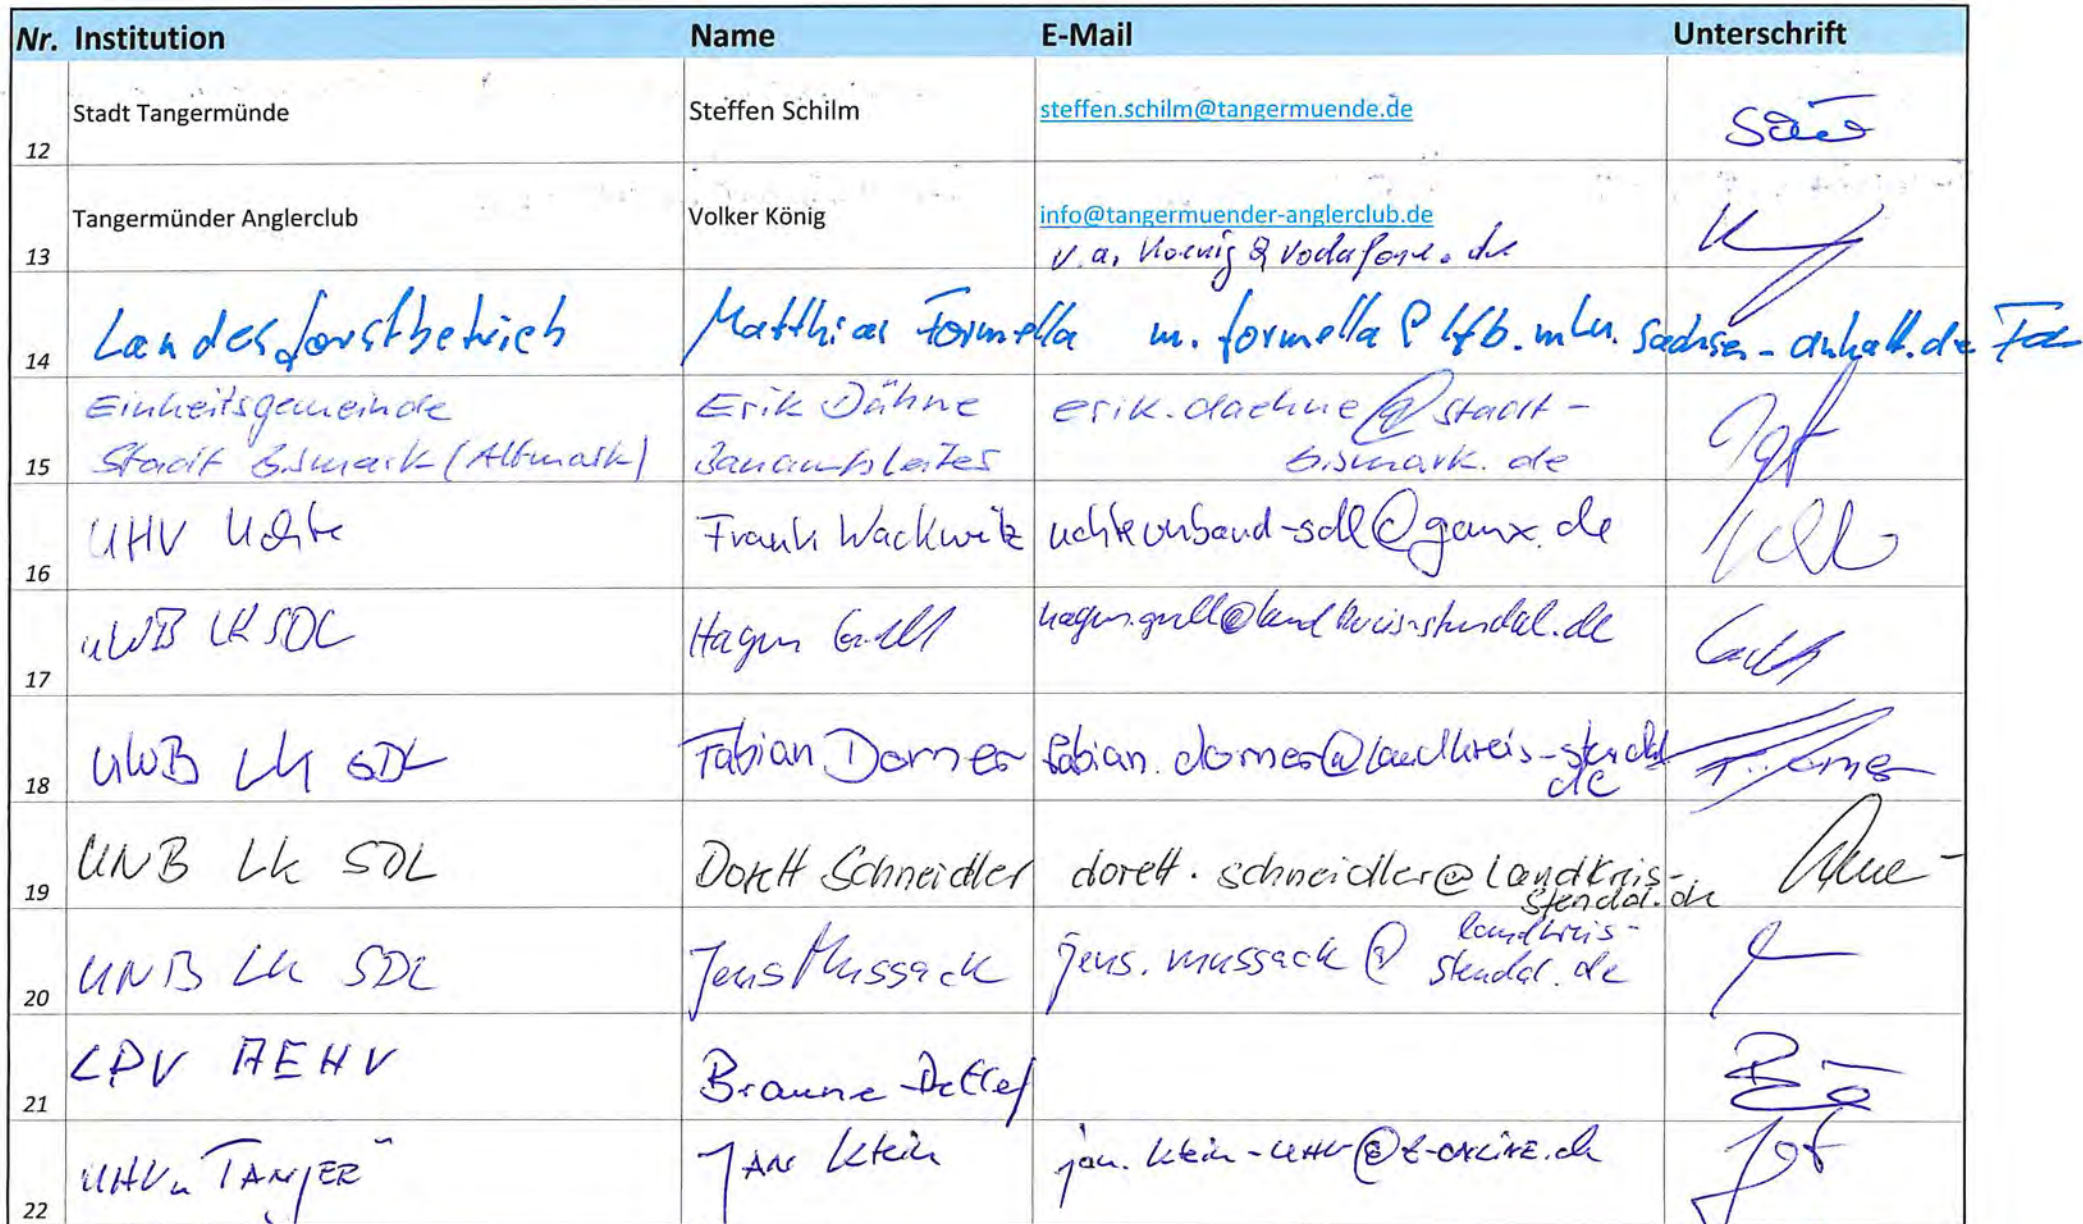 Nr. Institution Name E-Mail Unterschrift
12 Stadt Tangermünde Steffen Schilm steffen.schilm@tangermuende.de
13 Tangermünder Anglerclub Volker König info@tangermuender-anglerclub.de
v.a.koenig@vodafone.de
14 Landesforstbetrieb Matthias Formella m.formella@lfb.mlu.sachsen-anhalt.de
15 Einheitsgemeinde Erik Dähne erik.daehne@stadt-
Stadt Bismark (Altmark) Bauamtsleiter bismark.de
16 UHV Uchte Frank Wackwitz uchteverband-sdl@gmx.de
17 uWB LK SDL Hagen
18 UWB LK SDL Fabian Dorner fabian.dorner@landkreis-stendal
de
19 UNB LK SDL Dorett Schneidler dorett.schneidler@landkreis-
stendal.de
20 UNB LK SDL Jens Mussack jens.mussack@landkreis-
stendal.de
21 LPV AEHV Braune Detlef
22 UHV "TANGER" JAN Klein jan.klein-UHV@t-ONLINE.de